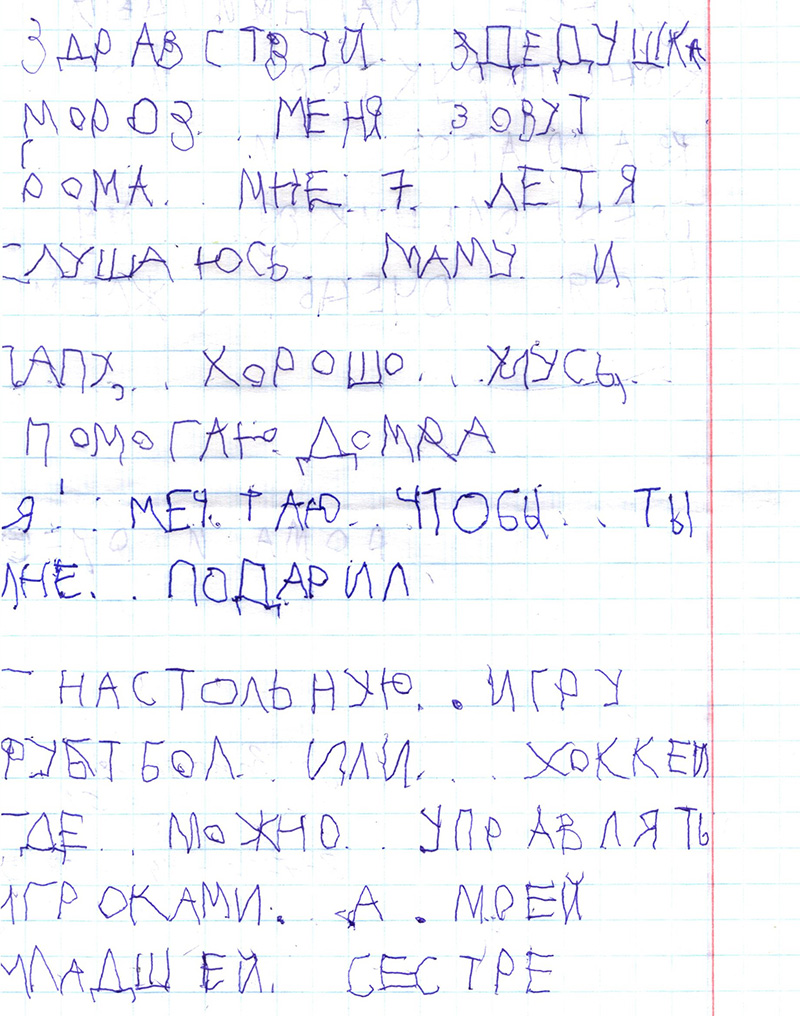 ЗДРАВСТВУЙ.. ДЕДУШКА
МОРОЗ.. МЕНЯ.. ЗОВУТ
РОМА.. МНЕ. 7.. ЛЕТ. Я
СЛУШАЮСЬ... МАМУ.. И
ПАПУ,.. ХОРОШО... УЧУСЬ,.
ПОМОГАЮ ДОМА
Я.. МЕЧТАЮ.. ЧТОБЫ.. ТЫ
МНЕ.. ПОДАРИЛ
НАСТОЛЬНУЮ.. ИГРУ
ФУТБОЛ.. ИЛИ... ХОККЕЙ
ГДЕ.. МОЖНО.. УПРАВЛЯТЬ
ИГРОКАМИ.. А. МОЕЙ
МЛАДШЕЙ. СЕСТРЕ